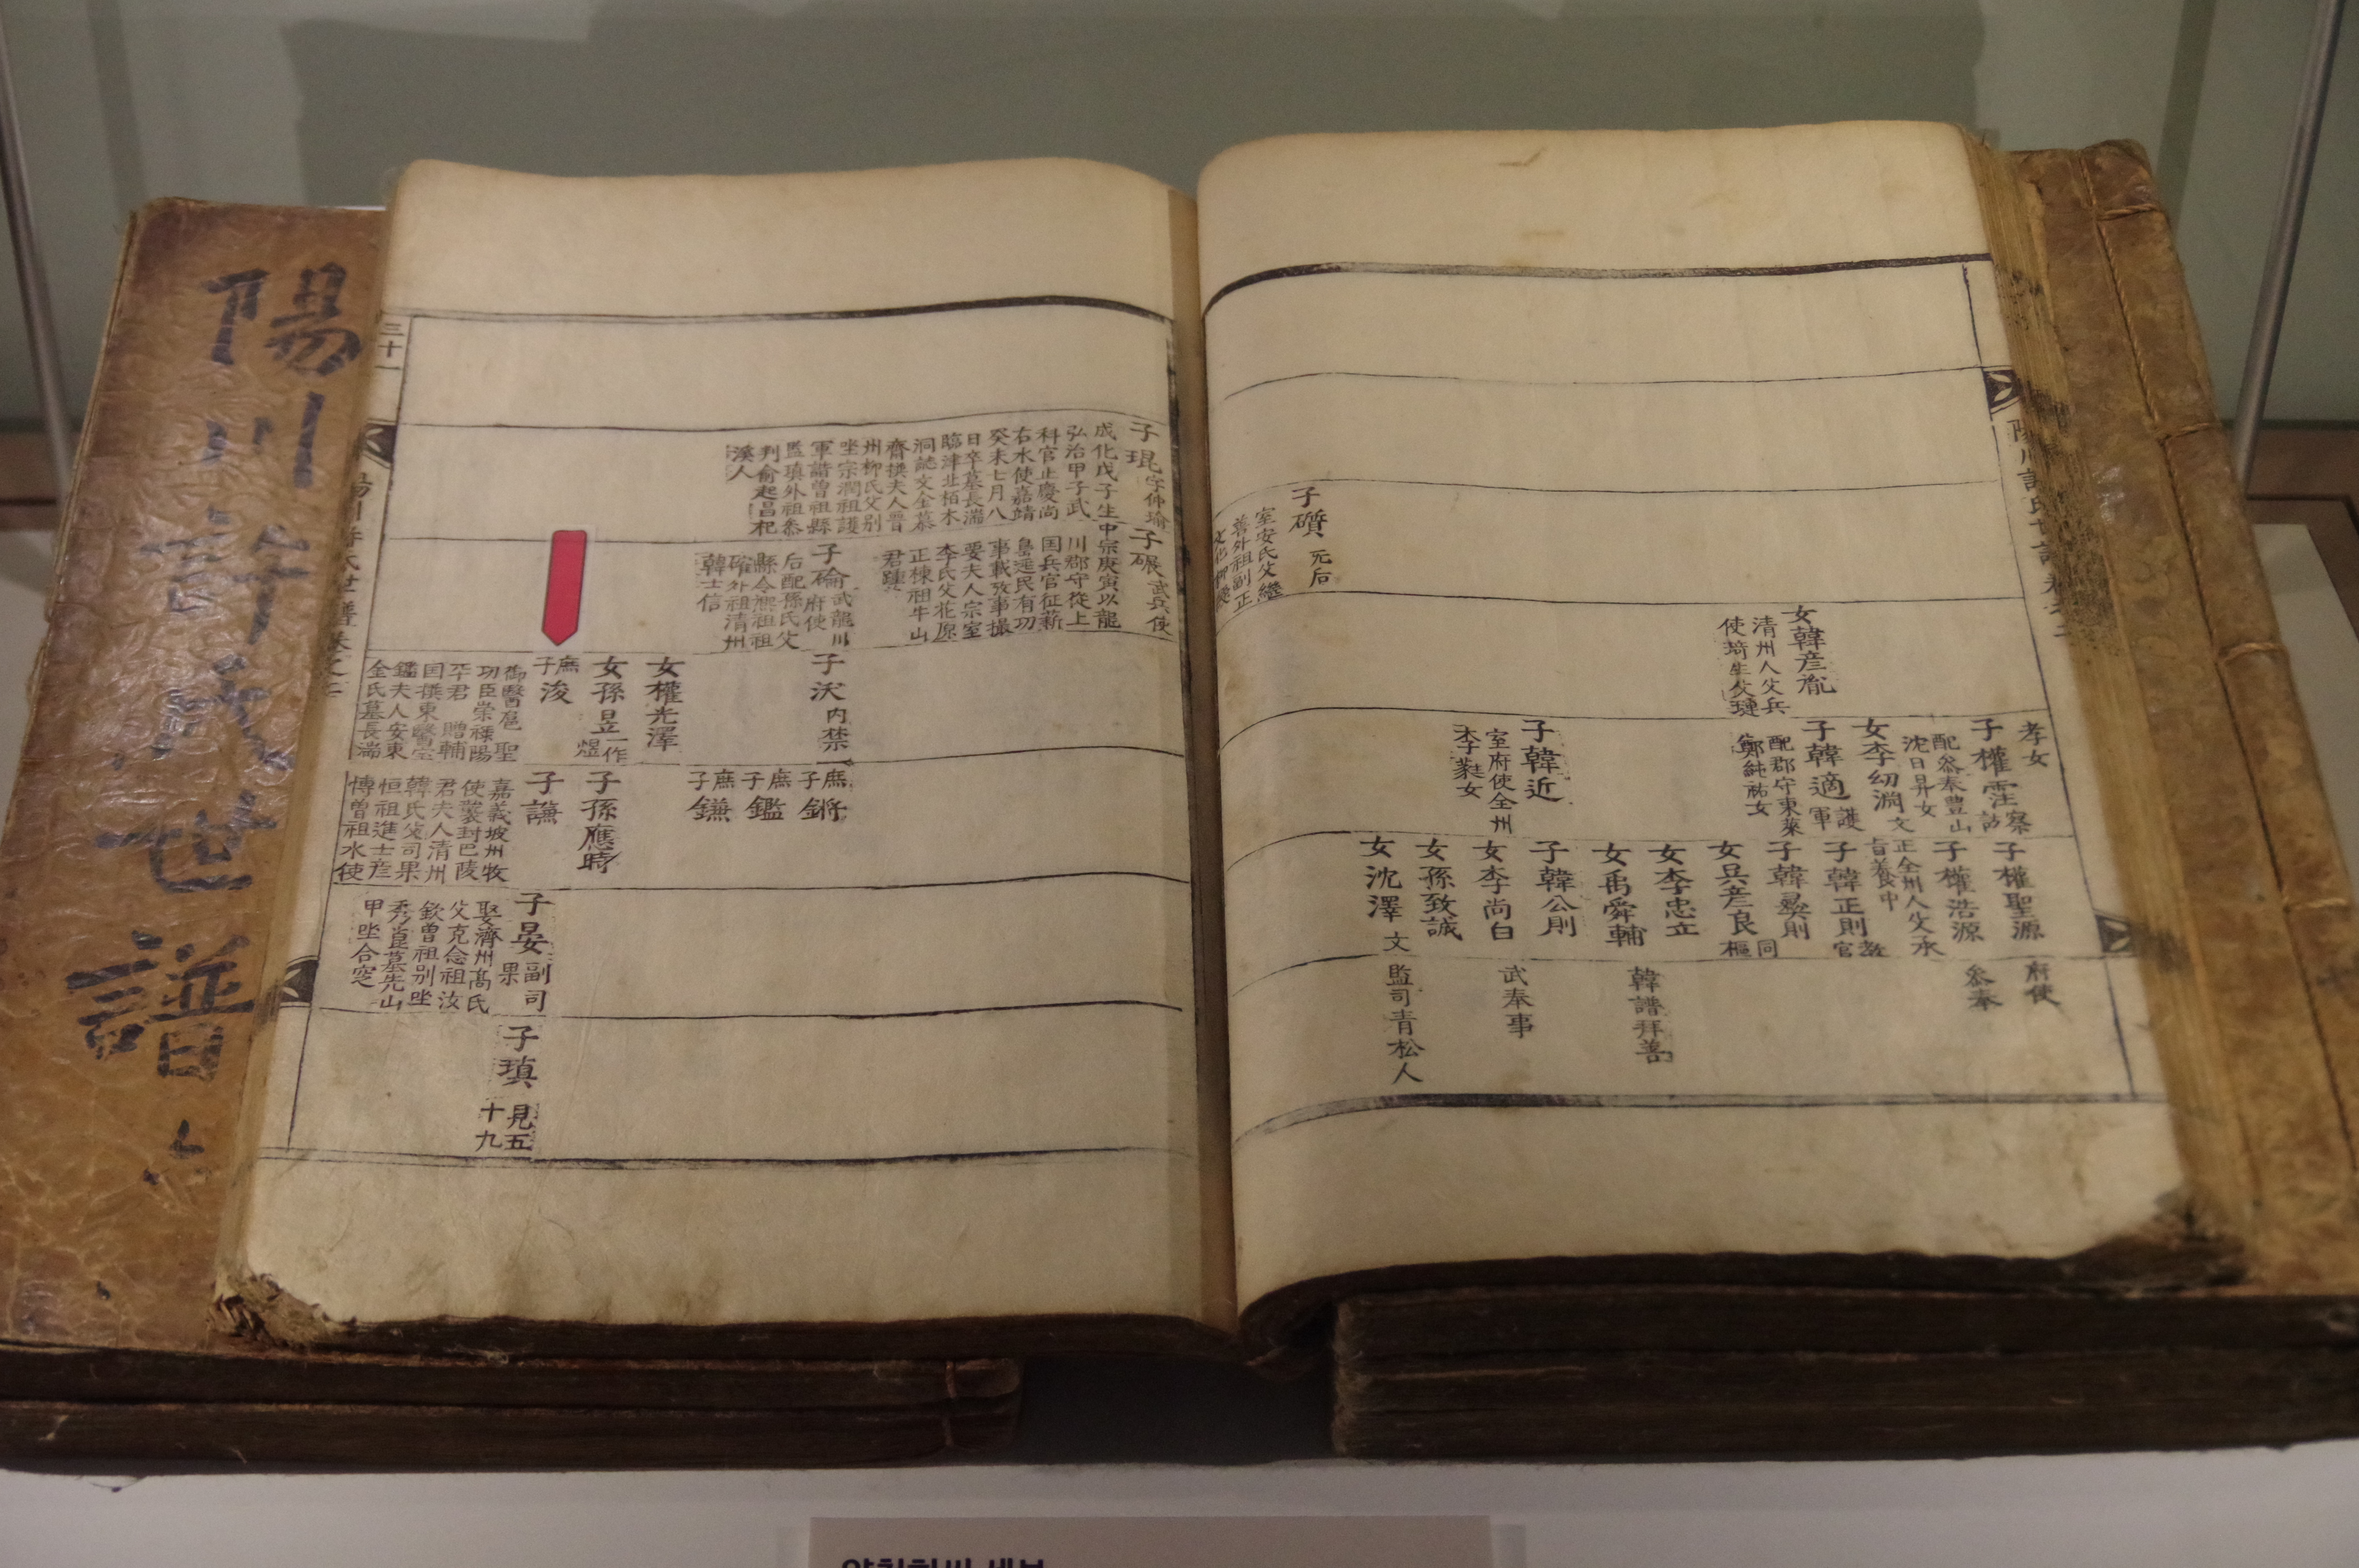 陽川許氏世譜
子權聖源
府使
子權浩源
叅奉
孝女
子權霔
察訪
配叅奉豊山
沈日昇女
女李幼淵
文正全州人父承
旨養中
子韓適
護軍
配郡守東萊
鄭純祐女
子韓正則
教官
子韓昜則
女吳彦良
同樞
女韓彦胤
清州人父兵
使琦生父璉
女李忠立
女禹舜輔
韓譜拜善
子韓近
室府使全州
李裴女
子韓公則
女李尚白
武奉事
女孫致誠
女沈澤
文
監司青松人
子礩
死后
室安氏父繼
善外祖副正
子琨
字仲瑜
成化戊子生
弘治甲子武
科官止慶尚
右水使嘉靖
癸未七月八
日卒墓長湍
臨津北栢木
洞誌文金慕
齋撰夫人晋
州柳氏父別
坐宗潤祖護
軍諧曾祖縣
監瑱外祖叅
判俞起昌杞
溪人
子碾
武兵使
中宗庚寅以龍
川郡守從上
国兵官征薪
島遼民有功
事載攷事撮
要夫人宗室
李氏父花原
正棟祖牛山
君踵
子碖
武龍川
府使
后配孫氏父
縣令熙祖
確外祖清州
韓士信
子沃
内禁
庶子鏘
庶子鑑
庶子鎌
女權光澤
女孫昱
一作煜
子孫應時
庶子浚
御醫扈聖
功臣崇祿陽
平君贈輔
国撰東醫宝
鑑夫人安東
金氏墓長湍
子謙
嘉義坡州牧
使襲封巴陵
君夫人清州
韓氏父司果
恒祖進士彦
愽曽祖水使
子晏
副司果
娶濟州髙氏
父克念祖汝
欽曽祖别坐
秀崑墓先山
甲坐合窆
子瑱
見五十九
三十一